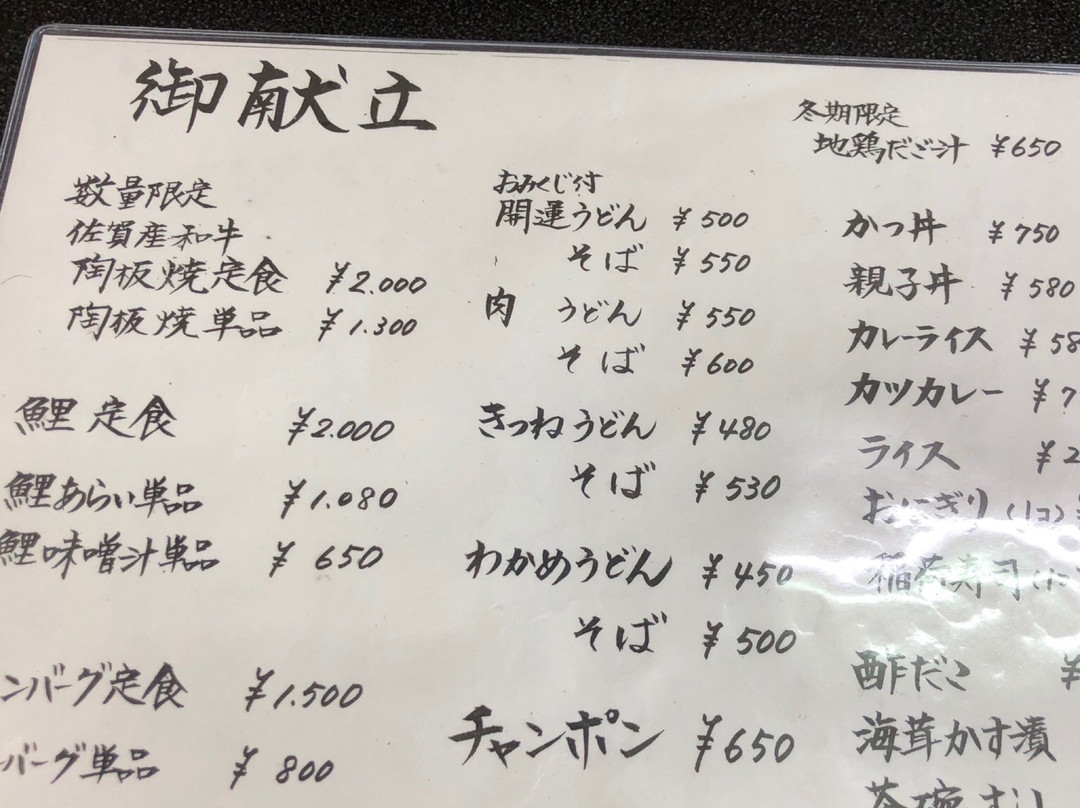 御献立
数量限定
佐賀産和牛
陶板焼定食 ¥2.000
陶板焼単品 ¥1.300
鯉定食 ¥2.000
鯉あらい単品 ¥1.080
鯉味噌汁単品 ¥650
ンバーグ定食 ¥1.500
バーグ単品 ¥800
おみくじ付
開運うどん ¥500
そば ¥550
肉 うどん ¥550
そば ¥600
きつねうどん ¥480
そば ¥530
わかめうどん ¥450
そば ¥500
チャンポン ¥650
冬期限定
地鶏だご汁 ¥650
かつ丼 ¥750
親子丼 ¥580
カレーライス ¥58
カツカレー ¥7
ライス ¥2
おにぎり(1コ)
稲荷寿司(1コ
酢だこ ¥
海茸かす漬